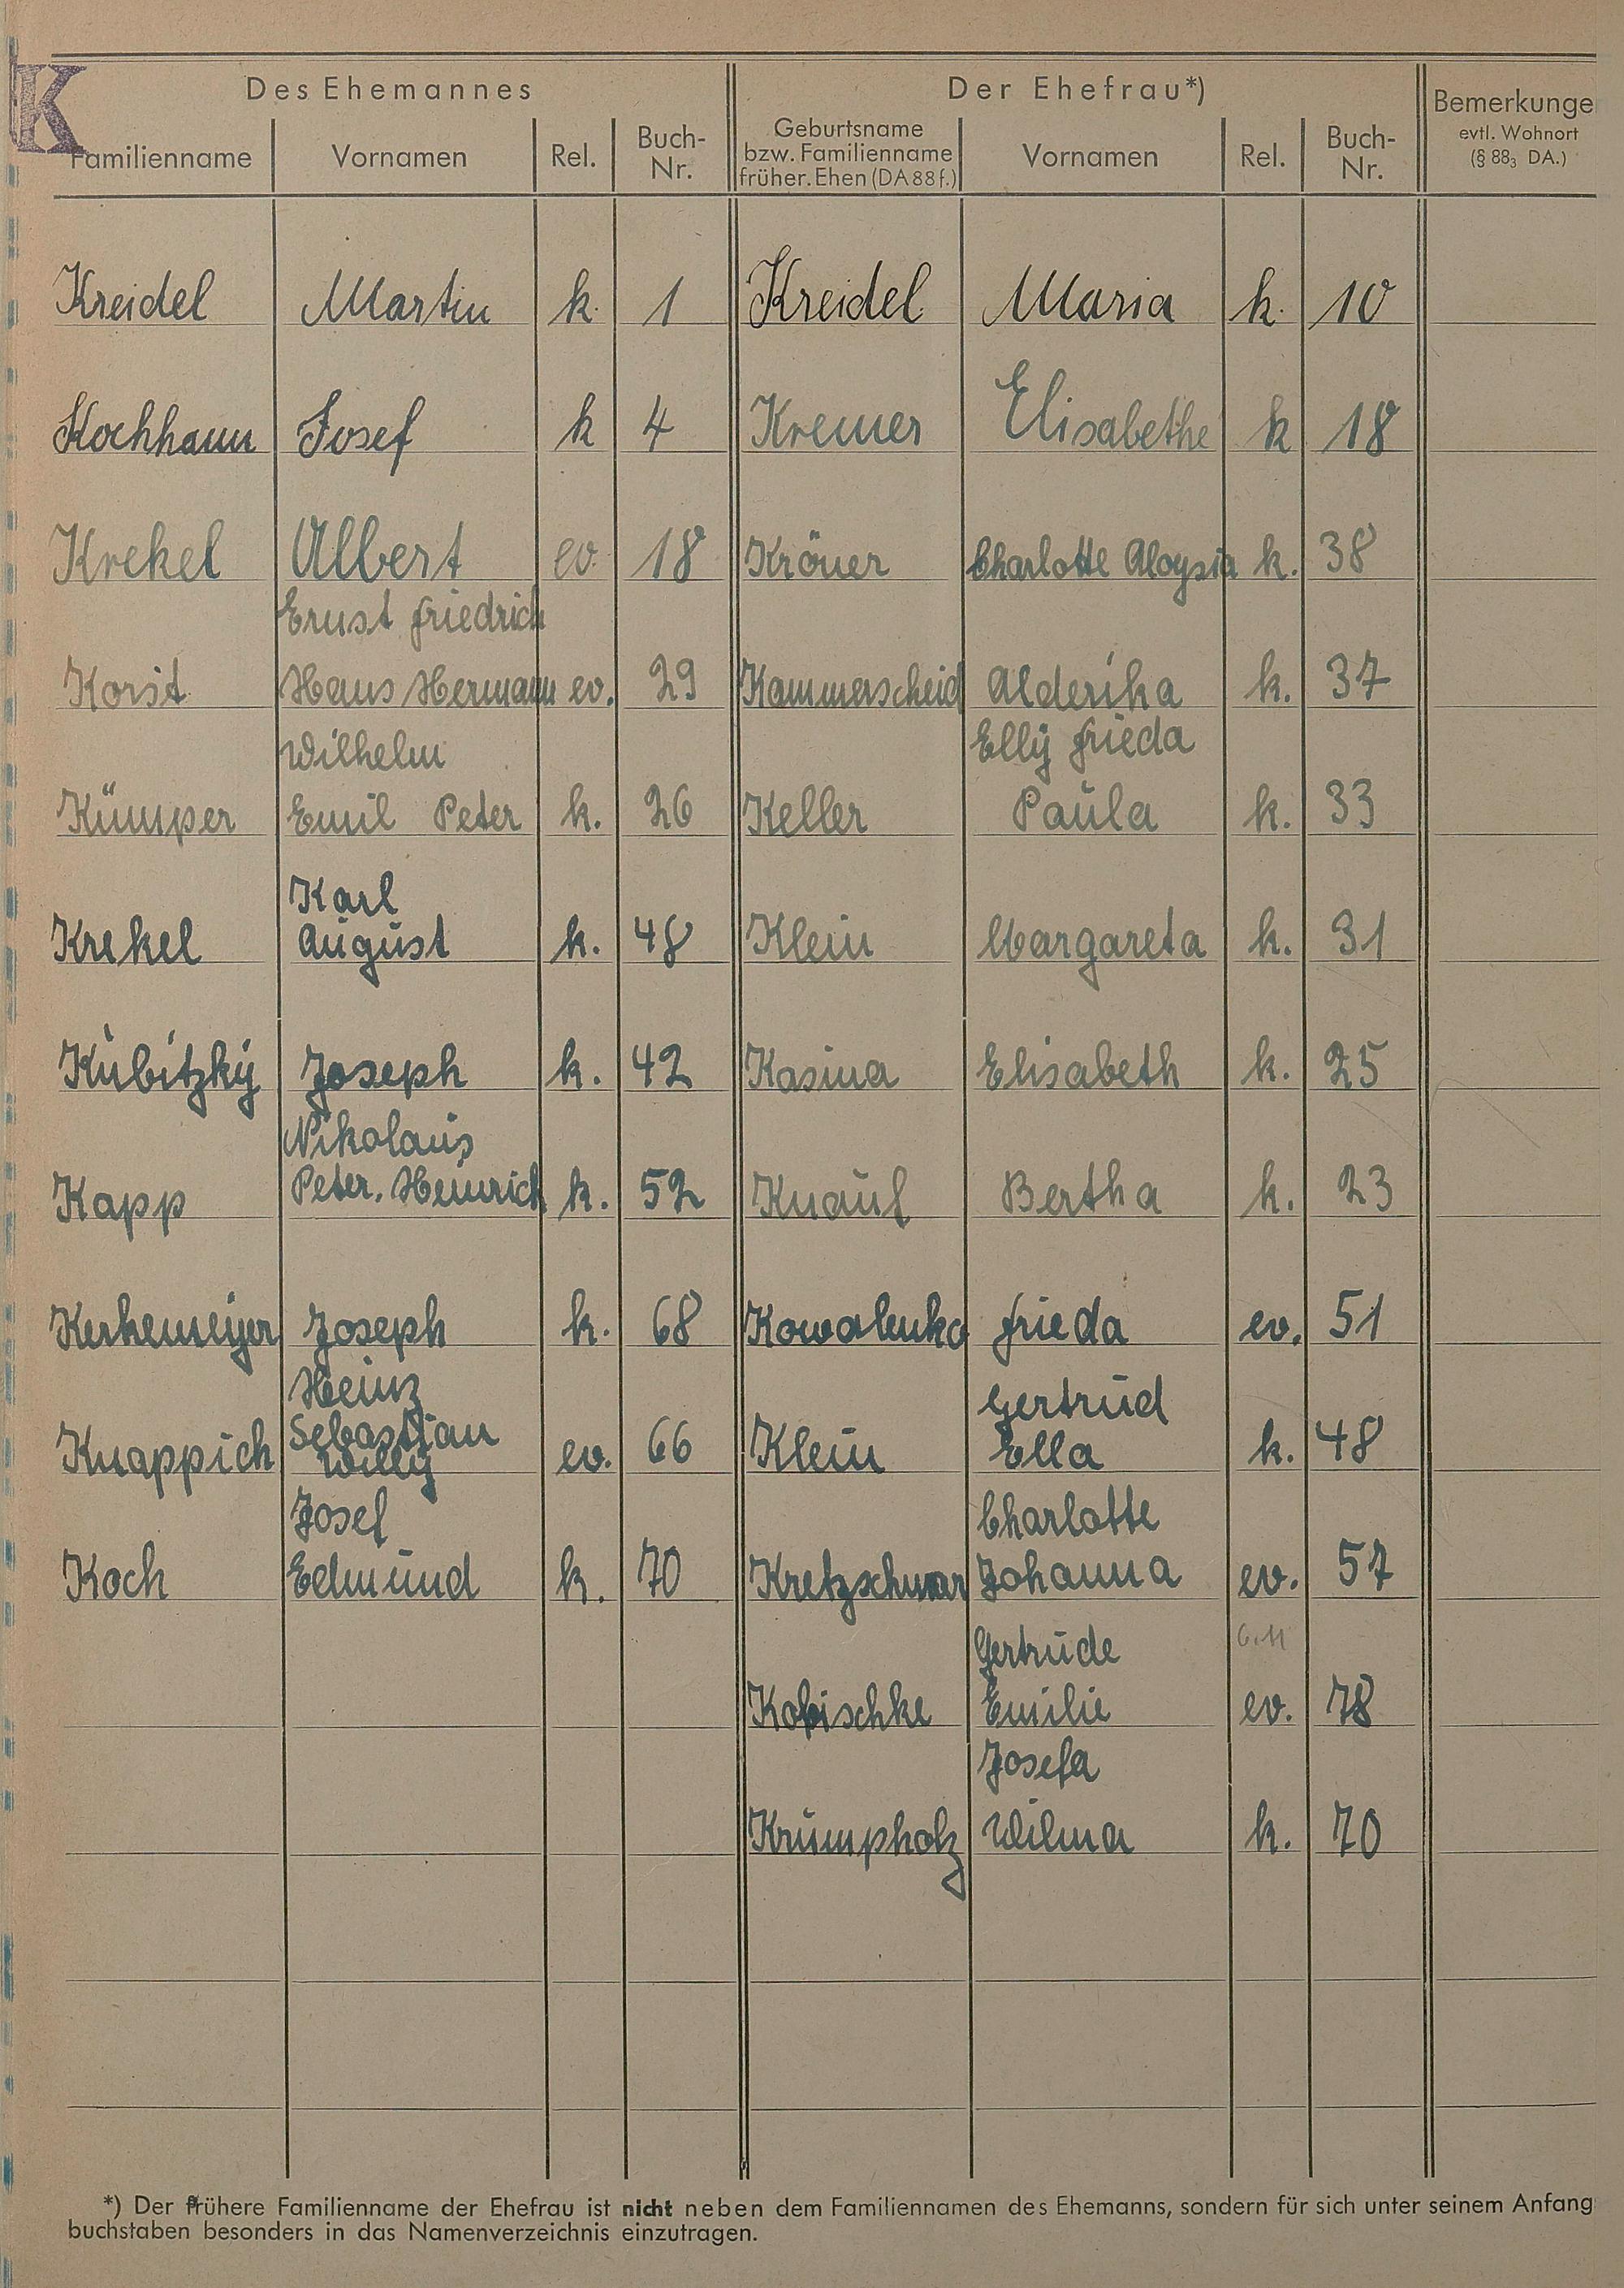 K
Des Ehemannes Der Ehefrau*) Bemerkunge
Familienname Vornamen Rel. Buch-Nr. Geburtsname bzw. Familienname früher. Ehen (DA 88 f.) Vornamen Rel. Buch-Nr. evtl. Wohnort (§ 88₃ DA.)
Kreidel Martin k. 1 Kreidel Maria k. 10
Kochhann Josef k 4 Kremer Elisabethe k 18
Krekel Albert ev. 18 Kröner Charlotte Aloysia k. 38
Ernst Friedrich
Korst Hans Hermann ev. 29 Kammerscheid Alderika k. 37
Wilhelm Elly Frieda
Kümper Emil Peter k. 26 Keller Paula k. 33
Karl
Krekel August k. 48 Klein Margareta k. 31
Kubitzky Joseph k. 42 Kasina Elisabeth k. 25
Nikolaus
Kapp Peter. Heinrich k. 52 Knauf Bertha k. 23
Kerkemeyer Joseph k. 68 Kowalenko Frieda ev. 51
Heinz Gertrud
Sebastian
Knappich Willy ev. 66 Klein Ella k. 48
Josef Charlotte
Koch Edmund k. 70 Kretzschmar Johanna ev. 57
Gertrude
Kobischke Emilie ev. 78
Josefa
Krumpholz Wilma k. 70
*) Der frühere Familienname der Ehefrau ist nicht neben dem Familiennamen des Ehemanns, sondern für sich unter seinem Anfang
buchstaben besonders in das Namenverzeichnis einzutragen.